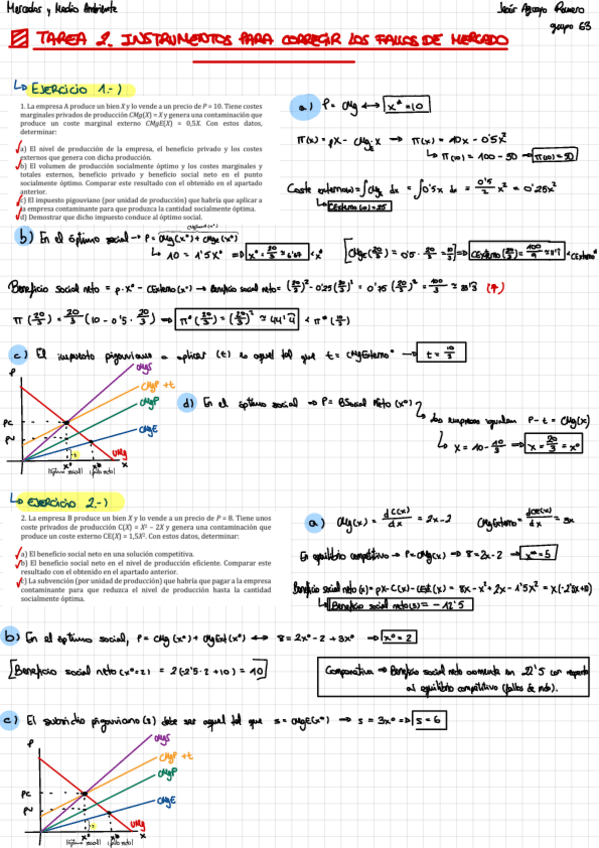 Mercados y Medio Ambiente
grupo 63
TAREA 2. INSTRUMENTOS PARA CORREGIR LOS FALLOS DE MERCADO
EJERCICIO 1.-)
1. La empresa A produce un bien X y lo vende a un precio de P = 10. Tiene costes
marginales privados de producción CMg(X) = X y genera una contaminación que
produce un coste marginal externo CMgE(X) = 0,5X. Con estos datos,
determinar:
a) El nivel de producción de la empresa, el beneficio privado y los costes
externos que genera con dicha producción.
b) El volumen de producción socialmente óptimo y los costes marginales y
totales externos, beneficio privado y beneficio social neto en el punto
socialmente óptimo. Comparar este resultado con el obtenido en el apartado
anterior.
c) El impuesto pigouviano (por unidad de producción) que habría que aplicar a
la empresa contaminante para que produzca la cantidad socialmente óptima.
d) Demostrar que dicho impuesto conduce al óptimo social.
a) P = CMg ↔ x* = 10
π(x) = 10x - 0'5x²
π(10) = 100 - 50 → π(10) = 50
Coste externo(x) = ∫CMgE dx = ∫0'5x dx = 0'5/2 x² = 0'25x²
CExterno(10) = 25
b) En el óptimo social → P = CMg(x°) + CMge(x°)
10 = 1'5x° → x° = 20/3 ≈ 6'67 < x*
Beneficio social neto = p·x° - CExterno(x°)
c) El impuesto pigouviano a aplicar (t) es aquel tal que t = CMgExterno° → t = 10/3
P
CMgS
CMgP + t
CMgP
CMgE
UMg
x
d) En el óptimo social → P = BSocial Neto (x°)
Las empresas igualan P - t = CMg(x)
x = 10 - 10/3 → x = 20/3 = x°
EJERCICIO 2.-)
2. La empresa B produce un bien X y lo vende a un precio de P = 8. Tiene unos
coste privados de producción C(X) = X² – 2X y genera una contaminación que
produce un coste externo CE(X) = 1,5X². Con estos datos, determinar:
a) El beneficio social neto en una solución competitiva.
b) El beneficio social neto en el nivel de producción eficiente. Comparar este
resultado con el obtenido en el apartado anterior.
c) La subvención (por unidad de producción) que habría que pagar a la empresa
contaminante para que reduzca el nivel de producción hasta la cantidad
socialmente óptima.
a) CMg(x) = dC(x)/dx = 2x - 2
CMgExterno = dCE(x)/dx = 3x
En equilibrio competitivo → P = CMg(x) → 8 = 2x - 2 → x* = 5
Beneficio social neto (x) = px - C(x) - CExt(x) = 8x - x² + 2x - 1'5x² = x(-2'5x + 10)
Beneficio social neto(5) = -12'5
b) En el óptimo social, P = CMg(x°) + CMgExt(x°) ↔ 8 = 2x° - 2 + 3x° → x° = 2
Beneficio social neto (x° = 2) = 2(-2'5·2 + 10) = 10
Comparativa → Beneficio social neto aumenta en 22'5 con respecto
al equilibrio competitivo (fallos de mdo).
c) El subsidio pigouviano (s) debe ser aquel tal que s = CMgE(x°) → s = 3x° → s = 6
P
CMgS
CMgP + t
CMgP
CMgE
UMg
x